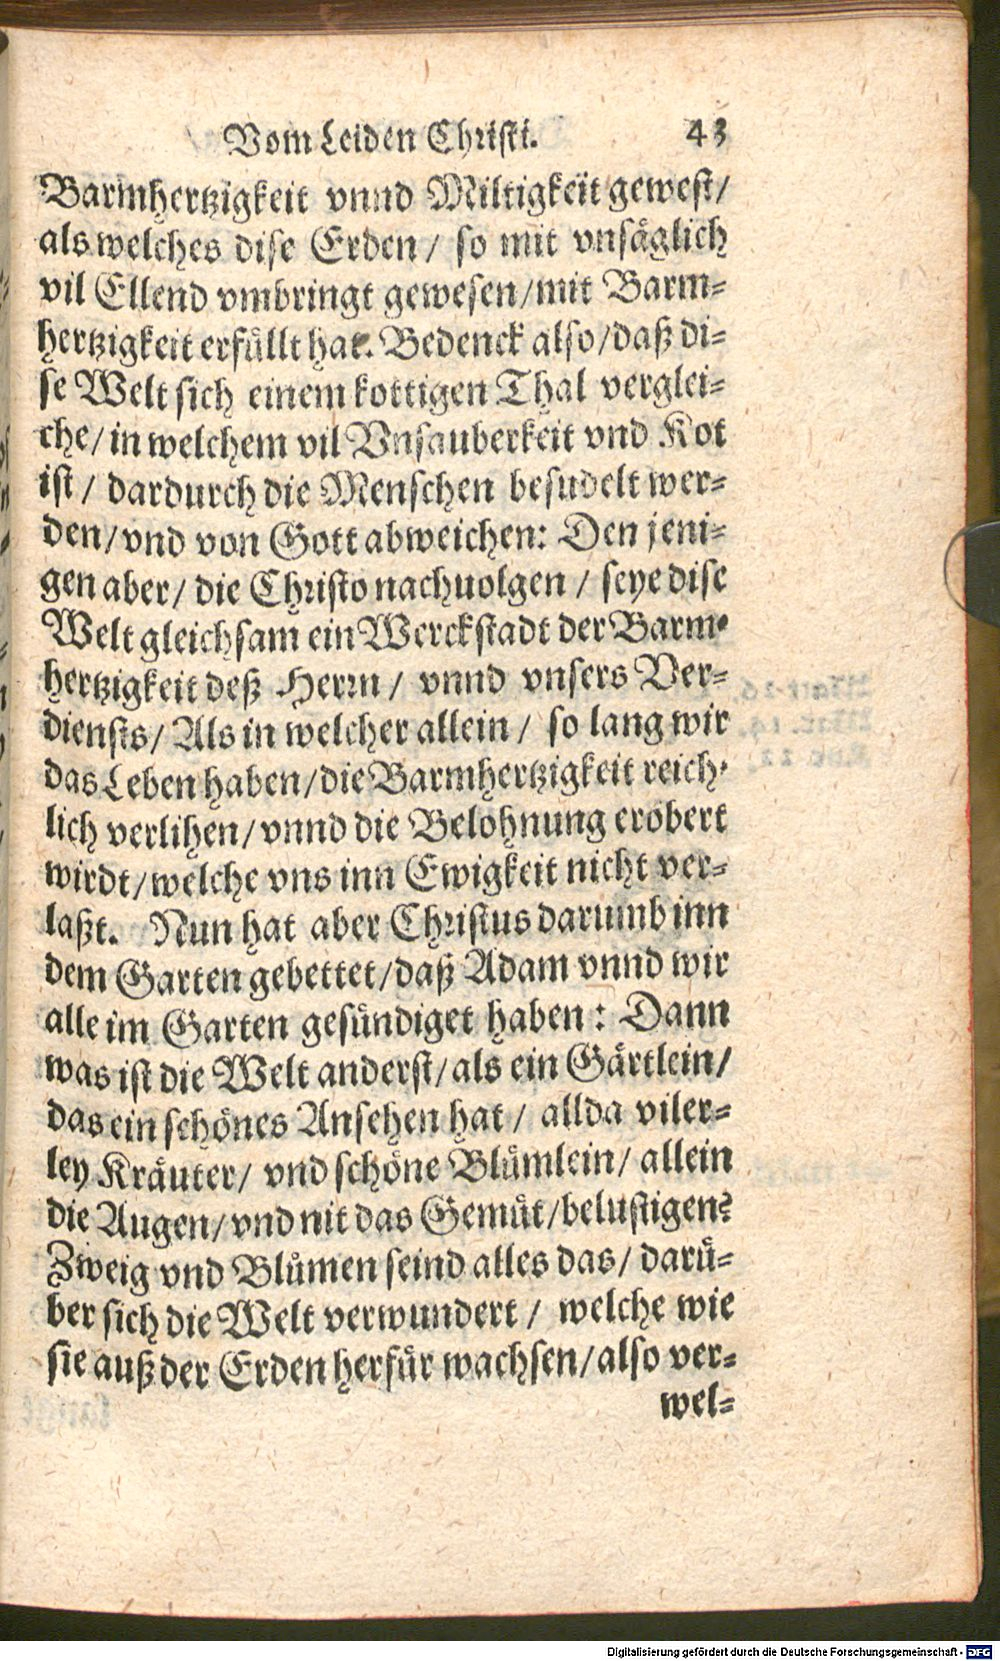 Vom Leiden Christi. 43
Barmhertzigkeit vnnd Miltigkeit gewest/
als welches dise Erden / so mit vnsäglich
vil Ellend vmbringt gewesen/mit Barm-
hertzigkeit erfüllt hat. Bedenck also/daß di-
se Welt sich einem kottigen Thal verglei-
che/ in welchem vil Vnsauberkeit vnd Kot
ist / dardurch die Menschen besudelt wer-
den/vnd von Gott abweichen: Den jeni-
gen aber/ die Christo nachuolgen / seye dise
Welt gleichsam ein Werckstadt der Barm-
hertzigkeit deß Herrn / vnnd vnsers Ver-
diensts/ Als in welcher allein / so lang wir
das Leben haben/die Barmhertzigkeit reich-
lich verlihen/vnnd die Belohnung erobert
wirdt/welche vns inn Ewigkeit nicht ver-
laßt. Nun hat aber Christus darumb inn
dem Garten gebettet/daß Adam vnnd wir
alle im Garten gesündiget haben : Dann
was ist die Welt anderst/als ein Gärtlein/
das ein schönes Ansehen hat / allda viler-
ley Kräuter/ vnd schöne Blümlein/ allein
die Augen/vnd nit das Gemüt/belustigen?
Zweig vnd Blümen seind alles das/ darü-
ber sich die Welt verwundert / welche wie
sie auß der Erden herfür wachsen/also ver-
wel-
Digitalisierung gefördert durch die Deutsche Forschungsgemeinschaft - DFG